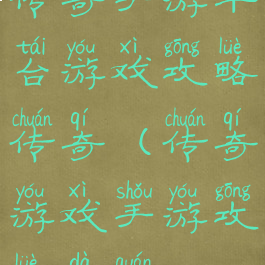 传奇手游平
tái yóu xì gōng lüè
台游戏攻略
chuán qí chuán qí
传奇（传奇
yóu xì shǒu yóu gōng
游戏手游攻
lüè dà quán